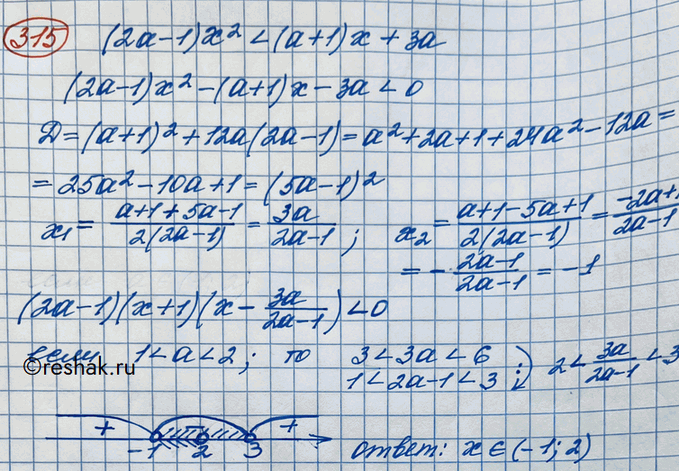 315
(2a-1)x² < (a+1)x + 3a
(2a-1)x² - (a+1)x - 3a < 0
D = (a+1)² + 12a(2a-1) = a² + 2a + 1 + 24a² - 12a =
= 25a² - 10a + 1 = (5a-1)²
x₁ = (a+1+5a-1)/(2(2a-1)) = 3a/(2a-1); x₂ = (a+1-5a+1)/(2(2a-1)) = (-2a+1)/(2a-1)
= -(2a-1)/(2a-1) = -1
(2a-1)(x+1)(x - 3a/(2a-1)) < 0
если 1 < a < 2; то 3 < 3a < 6
1 < 2a-1 < 3 ;) 2 < 3a/(2a-1) < 3
©reshak.ru
+ - +
-1 2 3
ответ: x ∈ (-1; 2)